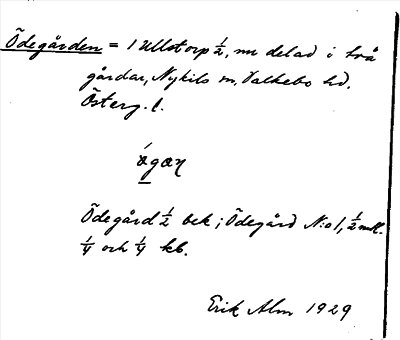 Ödegården = 1 Ullstorp 1/2, nu delad i två
gårdar, Nykils sn, Valkebo hd.
Österg. l.
ǽgæɳ
Ödegård 1/2 bek; Ödegård N:o 1, 1/2 mtl.
1/4 och 1/4 kb.
Erik Alm 1929